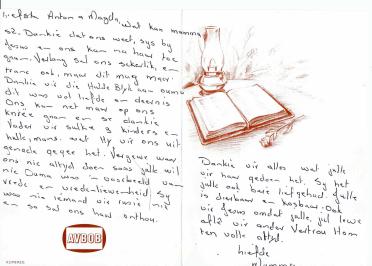 Liefste Anton & Magda, wat kan mamma
sê. Dankie dat ons weet, sy by
Jesus en ons kan na haar toe
gaan. Verlang sal ons sekerlik en
trane ook, maar dit mag maar.
Dankie vir die Halle Blyk aan ouma
dit was vol liefde en deernis
Ons kan net maar op ons
knieë gaan en sê dankie
Vader vir sulke kinders en
hulle mans wat Hy vir ons uit
genade gegee het. Vergewe waar
ons nie altyd doen soos julle wil
nie Ouma was 'n voorbeeld van
vrede en tevredenheid. Sy
was nie iemand vir rusie nie
en so sal ons haar onthou.
AVBOB
Dankie vir alles wat julle
vir haar gedoen het. Sy het
julle ook baie liefgehad. Julle
is dierbaar en kosbaar. Ook
vir Jesus omdat julle, jul lewe
aflê vir ander Vertrou Hom
ten volle altyd.
liefde
Mamma